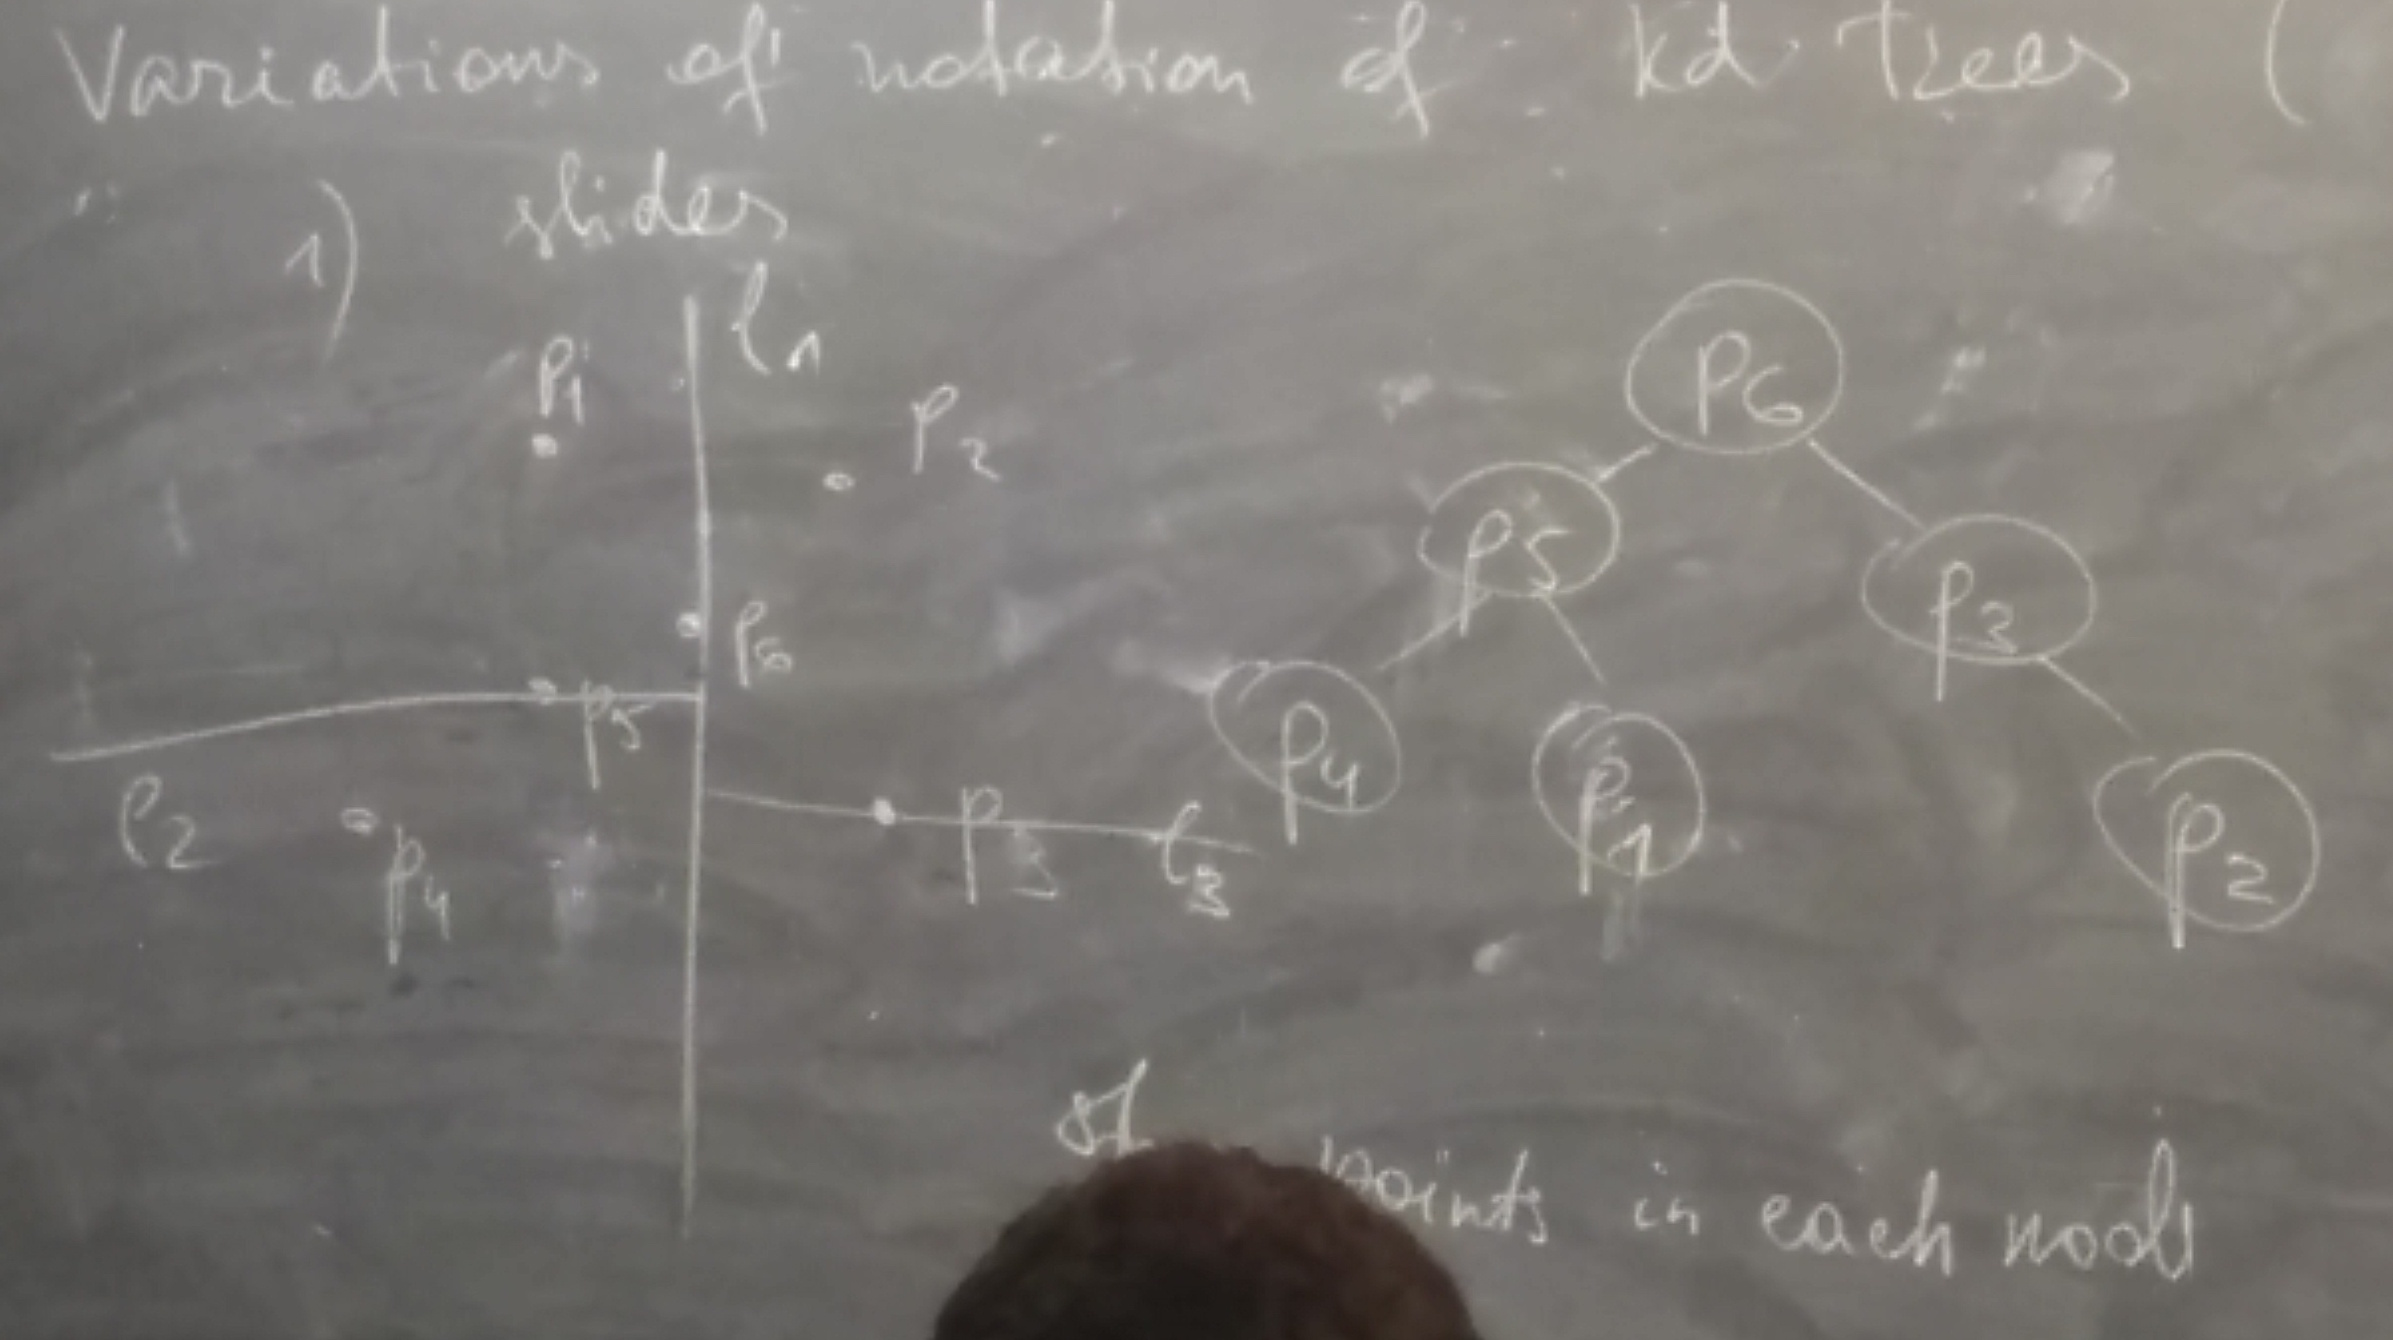 Variations of notation of kd trees (
1) slides
l1
p1
p2
p6
p5
l2
p4
p3
l3
p6
p5
p3
p4
p1
p2
points in each node